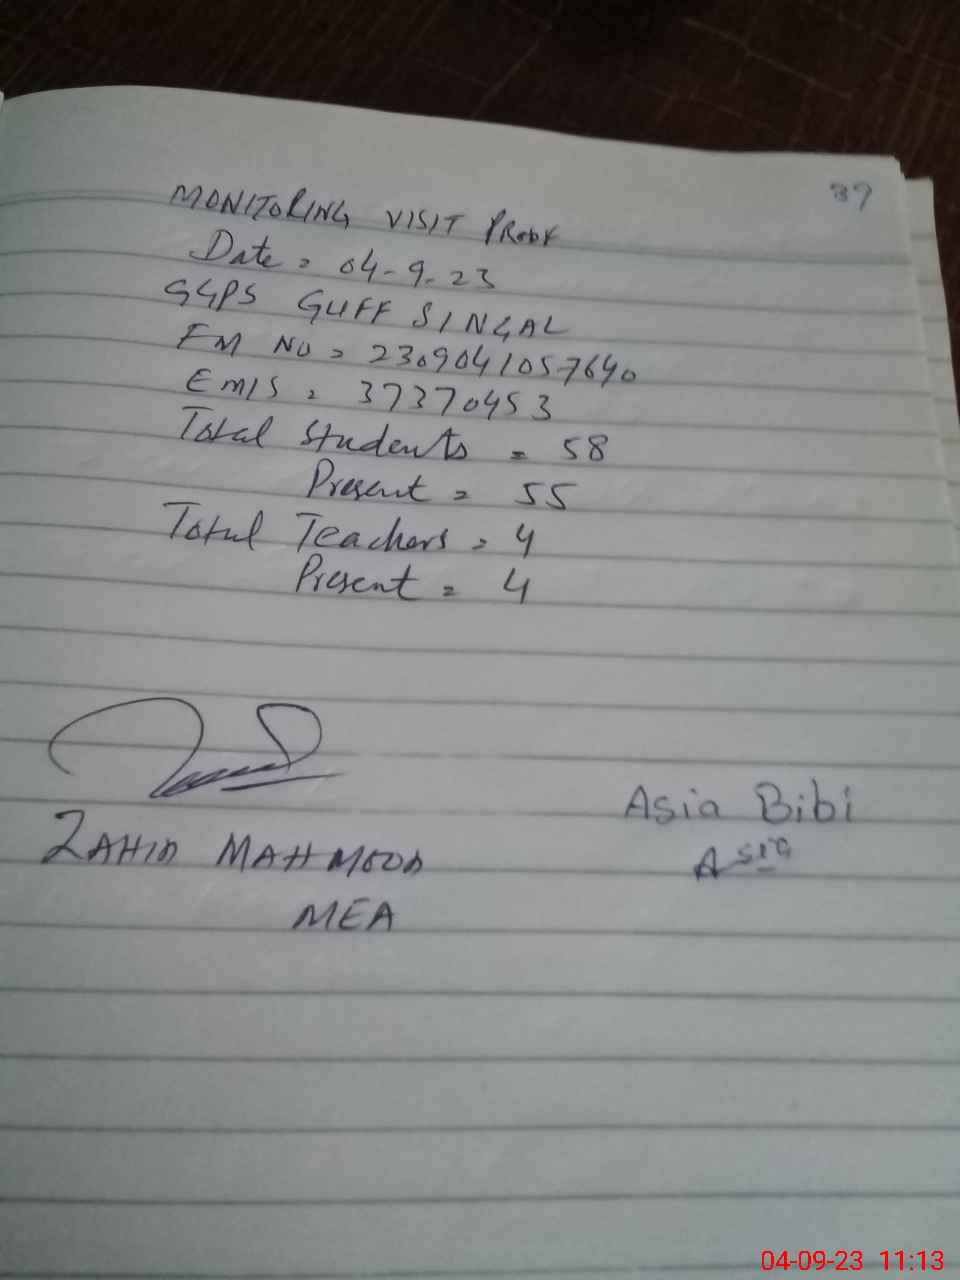 37
MONITORING VISIT PROOF
Date = 04-9-23
GGPS GUFF SINGAL
FM NO = 2309041057640
EMIS = 37370453
Total Students = 58
Present = 55
Total Teachers = 4
Present = 4
ZAHID MAHMOOD
MEA
Asia Bibi
Asia
04-09-23 11:13